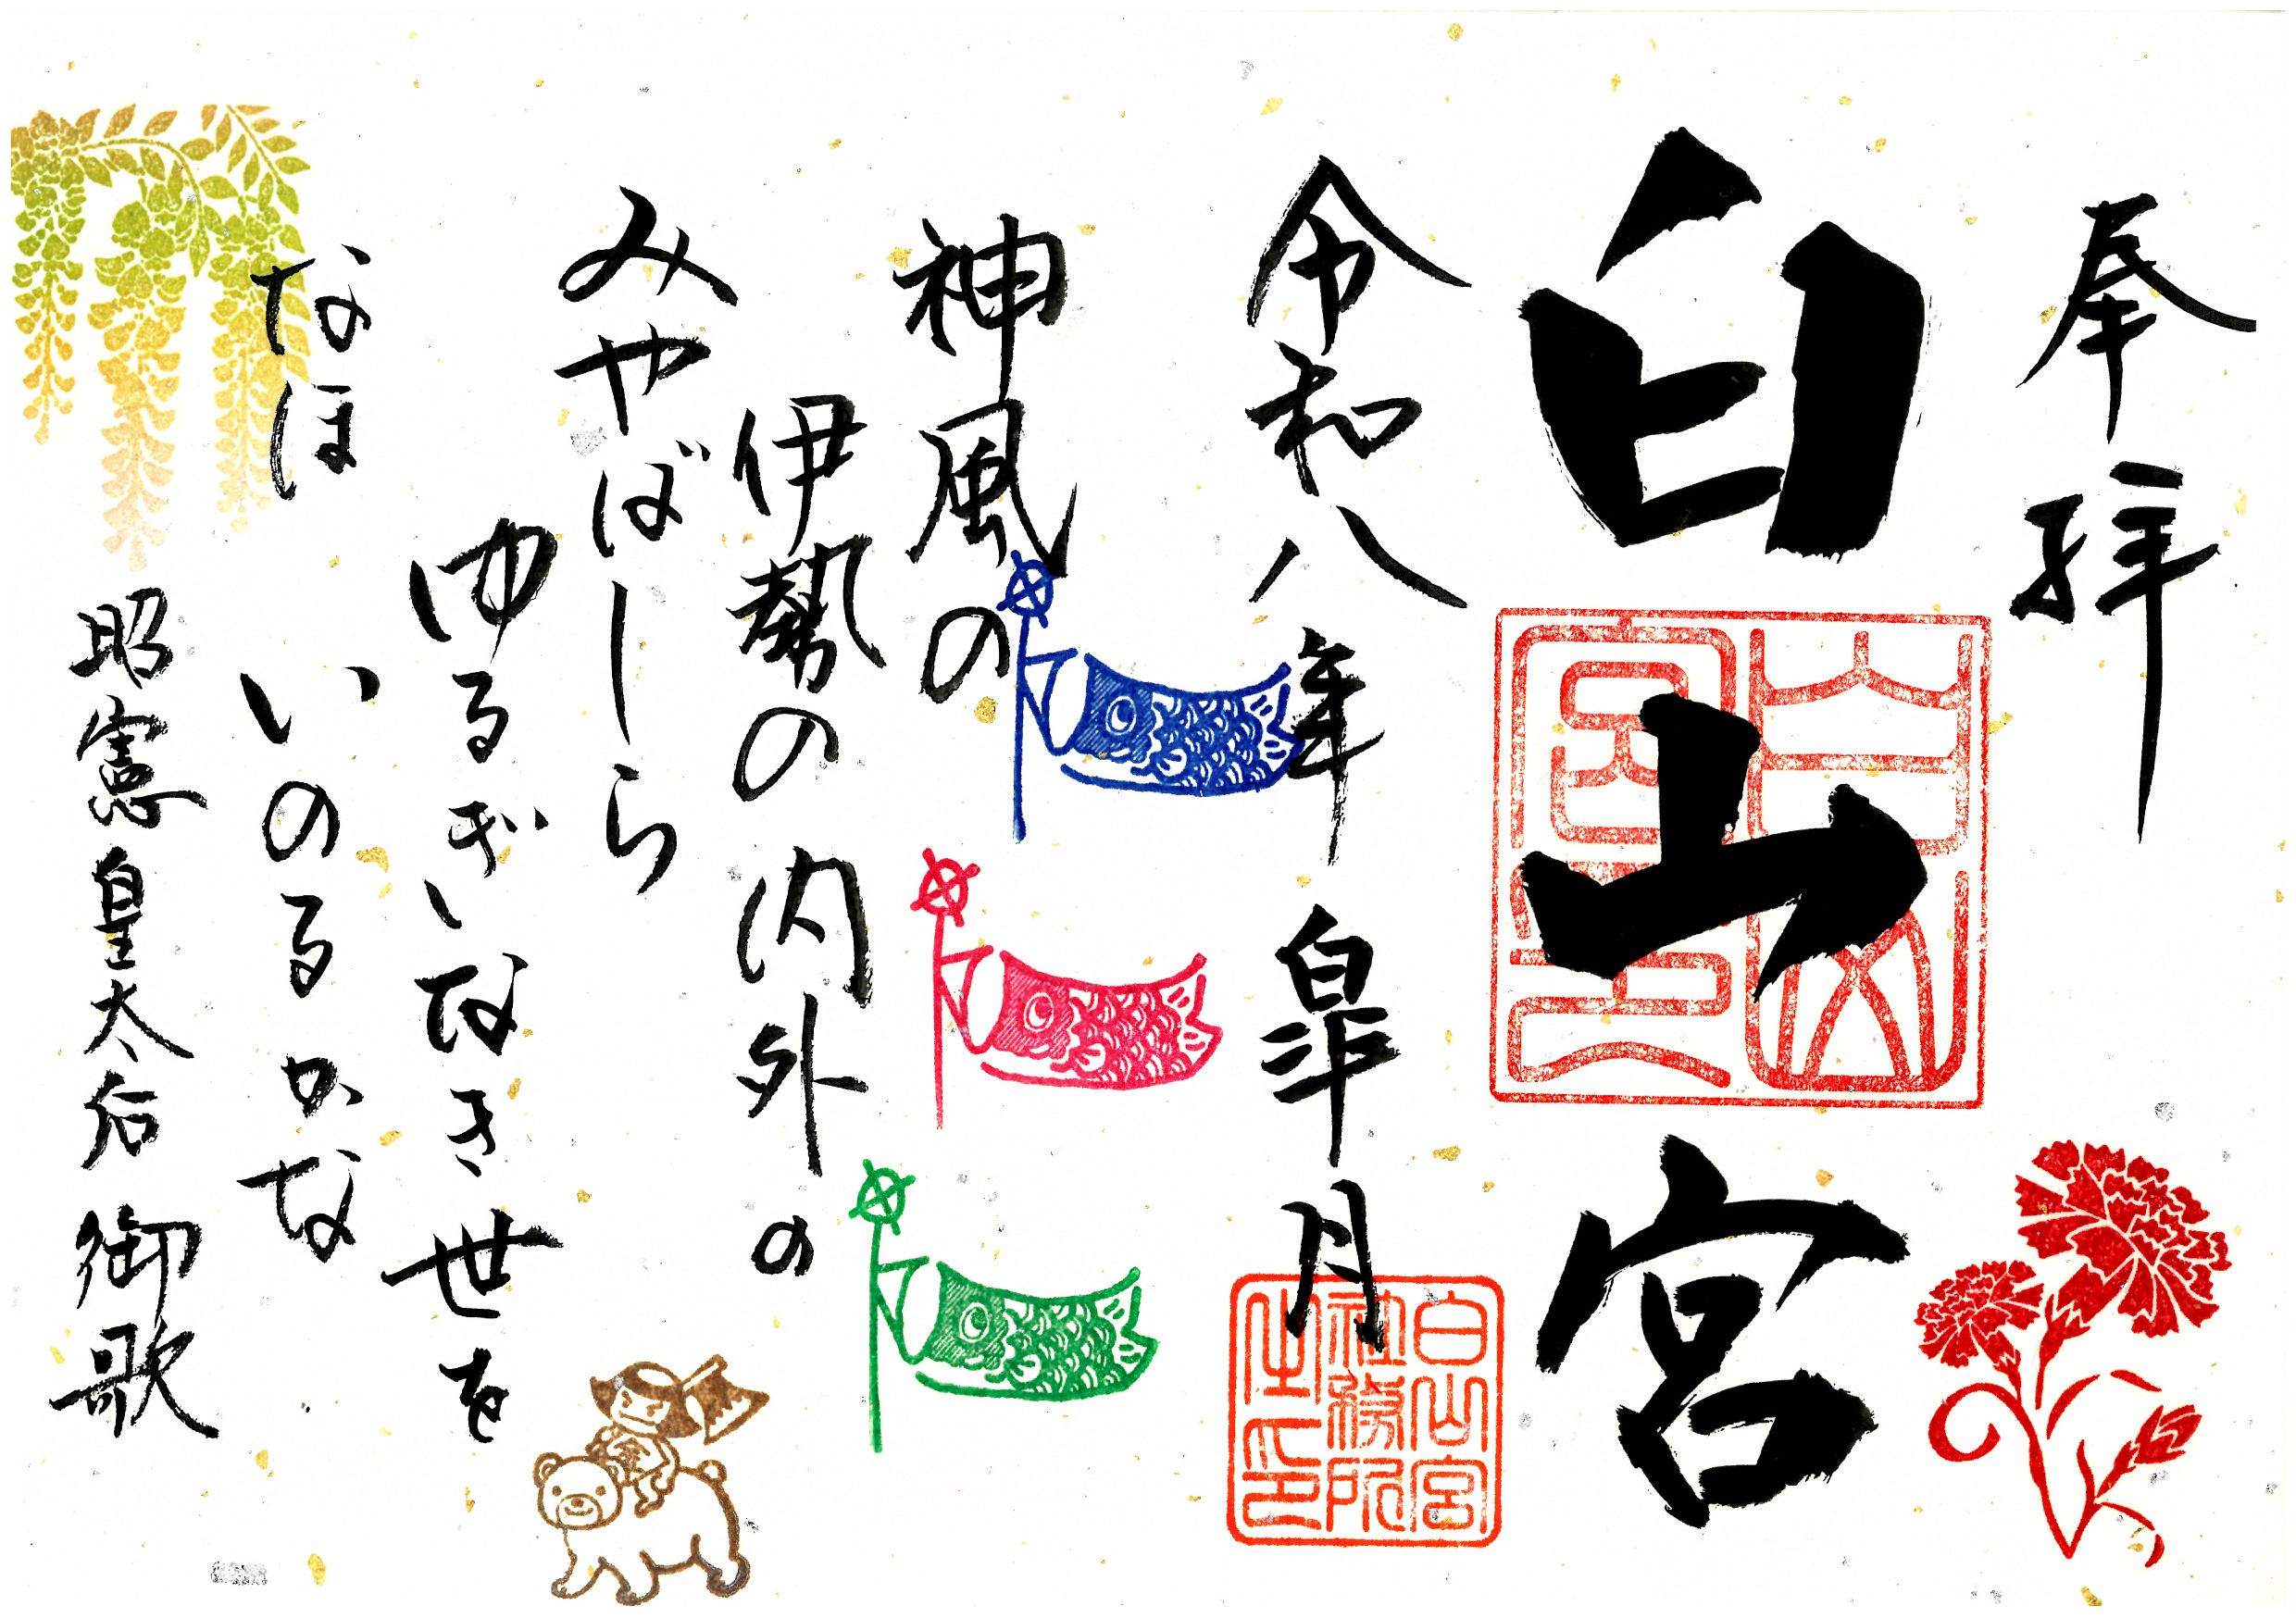 奉拝
白山宮
白山宮印
令和八年皐月
白山宮
社務所
之印
神風の
伊勢の内外の
みやばしら
ゆるぎいなき世を
なほ
いのるかな
昭憲皇太后 御歌